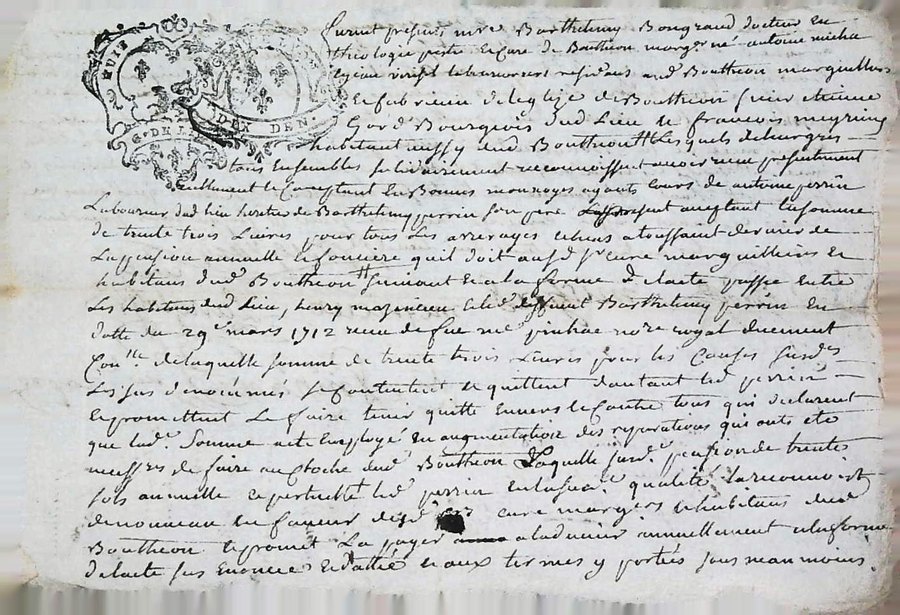 furent presents mre Barthelemy Bongrand docteur en
theologie prestre et Curé de Bouthéon marg antoine micha
residans aud Bouthéon marguilliers
et fabricien de leglize de Bouthéon sieur etienne
Bourgeois dud Lieu et francois meyrieu
habitant aussy aud Bouthéon Lesquels de leur gré
tous ensembles solidairement reconnoissent avoir receu presentement
reellement et Comptant en Bonnes monnoyes ayants cours de antoine perrin
Laboureur dud lieu heretier de Barthelemy perrin son pere la somme
de trente trois Livres pour tous les arrerages echeus a toussaint dernier de
La pension annuelle et fonciere quil doit ausd sr curé marguilliers et
habitans dud Bouthéon suivant et a la forme de lacte passé entre
Les habitans dud Lieu, et led deffunt Barthelemy perrin en
datte du 29e mars 1712 receu de feu me pinhac nore royal duement
Conlle de laquelle somme de trente trois Livres pour les Causes susdes
Les sus denommés se contentent et quittent dautant led perrin
et promettent Le faire tenir quitte envers et contre tous qui declarent
que lade Somme a ete Employé en augmentation des reparations qui onts eté
necessres de faire au Clocher dud Bouthéon Laquelle susde pension de trente
sols annuelle et perpetuelle led perrin en la susde qualité La reconnoit
de nouveau en faveur desd srs curé margers et habitans dud
Bouthéon et promet La payer a ladvenir annuellement a la forme
de lacte sus Enoncé Et datté et aux termes y portés sous neanmoins